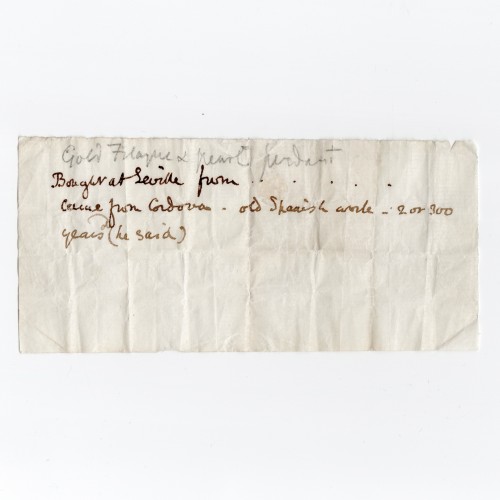 Gold Filagree & pearl pendant
Bought at Seville from . . . . .
Came from Cordova - old Spanish work - 2 or 300
years (he said)